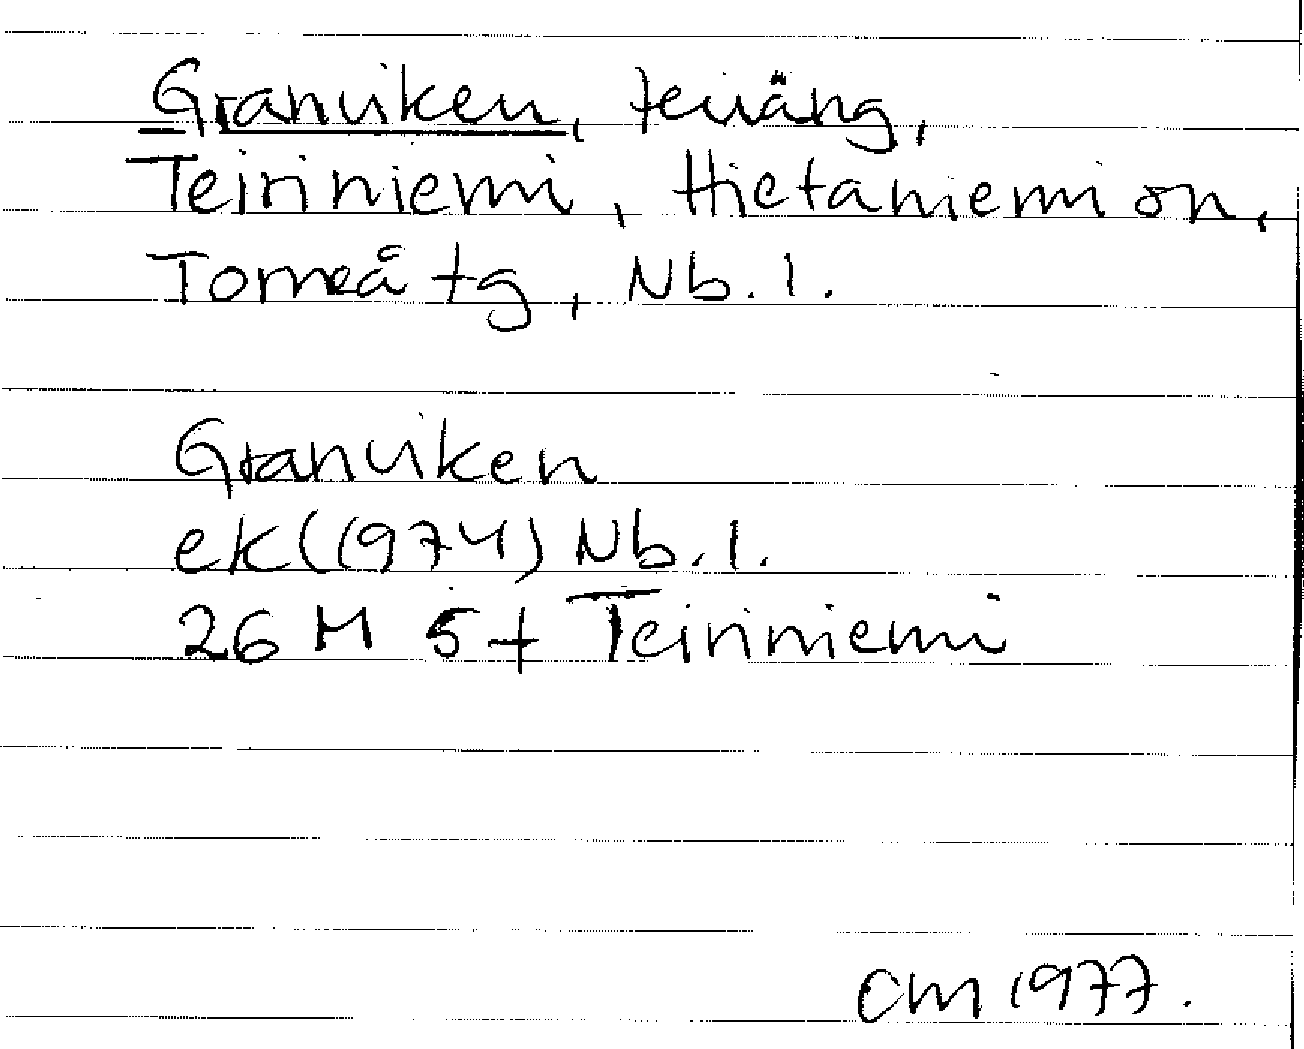 Granviken, teiräng,
Teiriniemi, Hietaniemi sn,
Torneå tg, Nb. l.
Granviken
ek (1974) Nb. l.
26 M 5 f Teiriniemi
CM 1977.